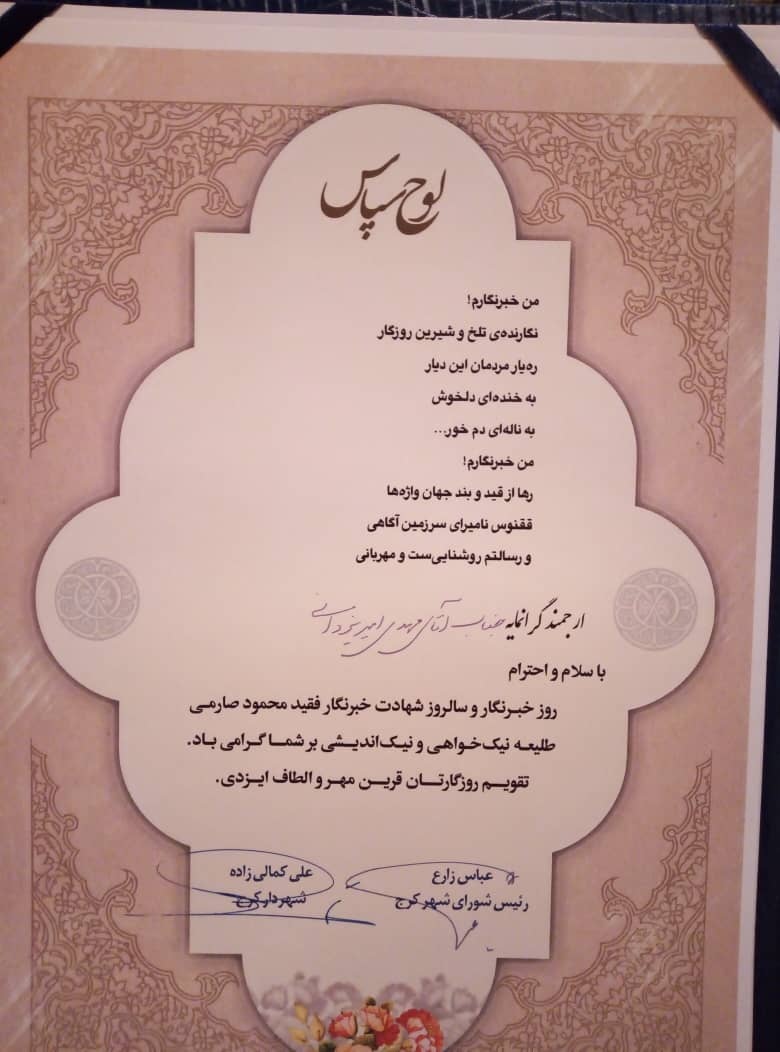 لوح سپاس
من خبرنگارم!
نگارنده‌ی تلخ و شیرین روزگار
ره‌یار مردمان این دیار
به خنده‌ای دلخوش
به ناله‌ای دم خور...
من خبرنگارم!
رها از قید و بند جهان واژه‌ها
ققنوس نامیرای سرزمین آگاهی
و رسالتم روشنایی‌ست و مهربانی
ارجمند گرانمایه جناب آقای مهدی امیر یزدانی
با سلام و احترام
روز خبرنگار و سالروز شهادت خبرنگار فقید محمود صارمی
طلیعه نیک‌خواهی و نیک‌اندیشی بر شما گرامی باد.
تقویم روزگارتان قرین مهر و الطاف ایزدی.
عباس زارع
رئیس شورای شهر کرج
علی کمالی زاده
شهردار کرج